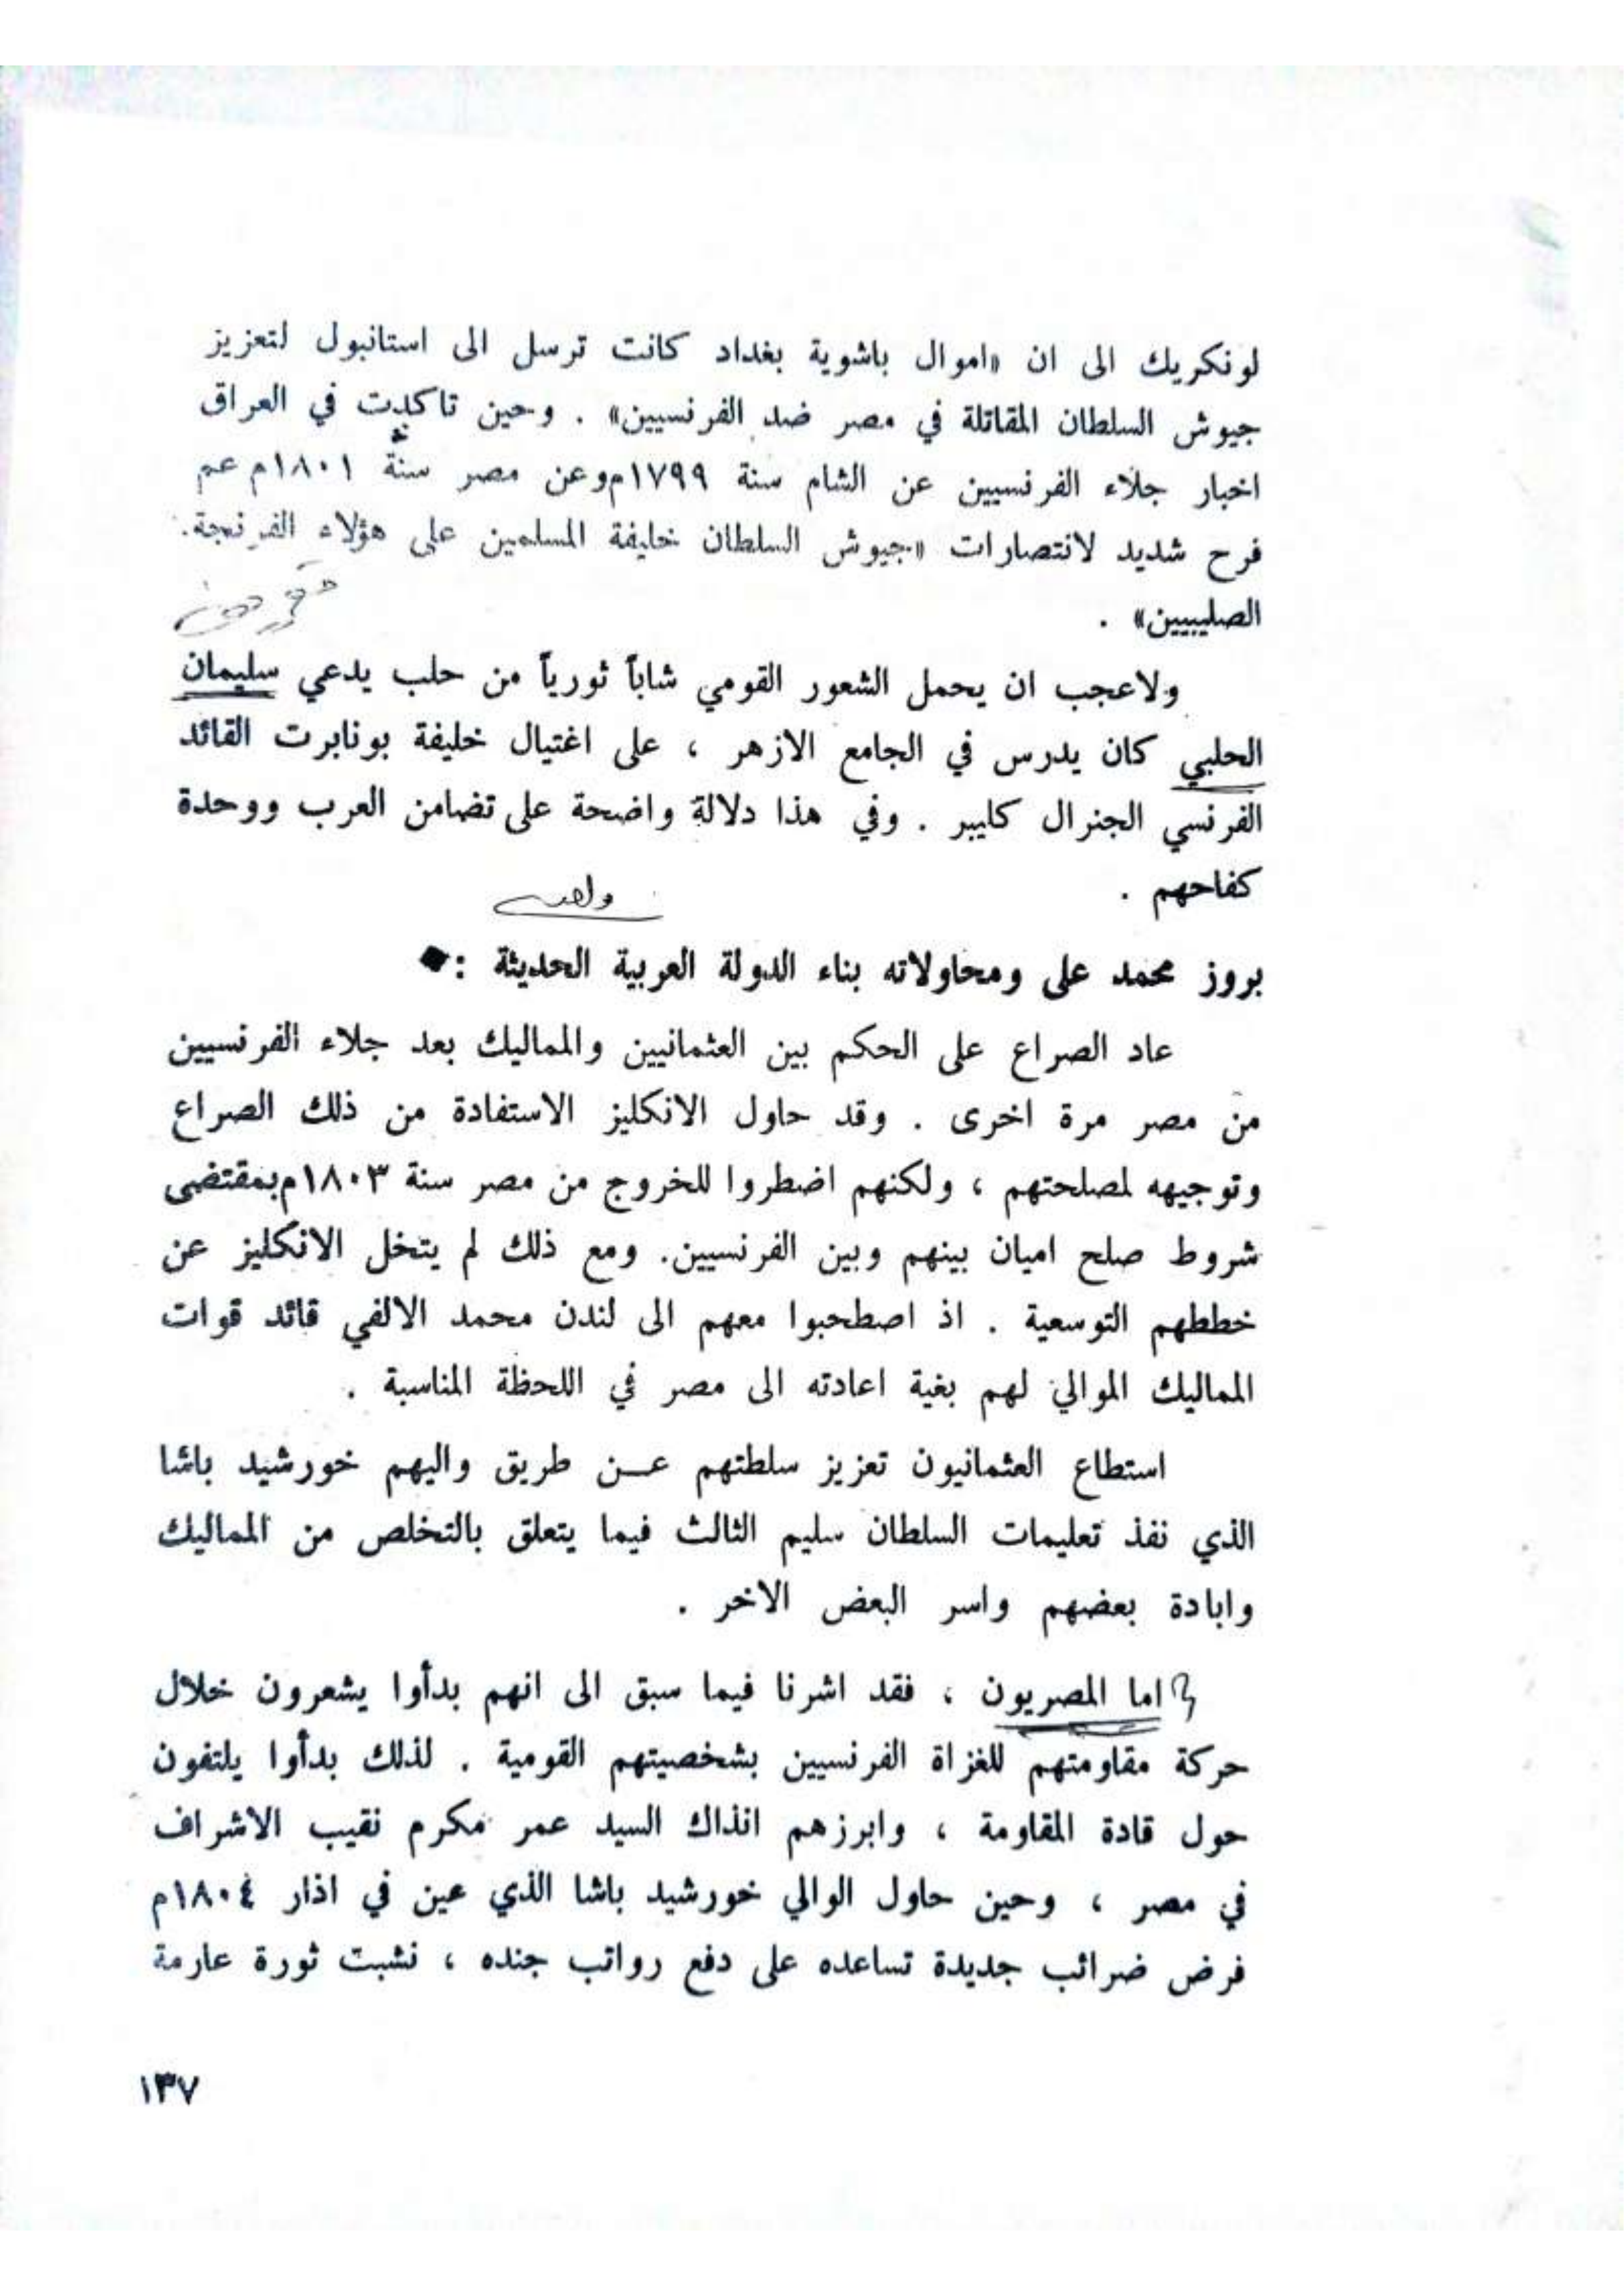 لونكريك الى ان «اموال باشوية بغداد كانت ترسل الى استانبول لتعزيز
جيوش السلطان المقاتلة في مصر ضد الفرنسيين» . وحين تاكدت في العراق
اخبار جلاء الفرنسيين عن الشام سنة ١٧٩٩م وعن مصر سنة ١٨٠١م عم
فرح شديد لانتصارات «جيوش السلطان خليفة المسلمين على هؤلاء الفرنجة
الصليبيين» .
ولاعجب ان يحمل الشعور القومي شاباً ثورياً من حلب يدعي سليمان
الحلبي كان يدرس في الجامع الازهر ، على اغتيال خليفة بونابرت القائد
الفرنسي الجنرال كليبر . وفي هذا دلالة واضحة على تضامن العرب ووحدة
كفاحهم .
بروز محمد على ومحاولاته بناء الدولة العربية الحديثة :
عاد الصراع على الحكم بين العثمانيين والمماليك بعد جلاء الفرنسيين
من مصر مرة اخرى . وقد حاول الانكليز الاستفادة من ذلك الصراع
وتوجيهه لمصلحتهم ، ولكنهم اضطروا للخروج من مصر سنة ١٨٠٣م بمقتضى
شروط صلح اميان بينهم وبين الفرنسيين. ومع ذلك لم يتخل الانكليز عن
خططهم التوسعية . اذ اصطحبوا معهم الى لندن محمد الالفي قائد قوات
المماليك الموالي لهم بغية اعادته الى مصر في اللحظة المناسبة .
استطاع العثمانيون تعزيز سلطتهم عـن طريق واليهم خورشيد باشا
الذي نفذ تعليمات السلطان سليم الثالث فيما يتعلق بالتخلص من المماليك
وابادة بعضهم واسر البعض الاخر .
اما المصريون ، فقد اشرنا فيما سبق الى انهم بدأوا يشعرون خلال
حركة مقاومتهم للغزاة الفرنسيين بشخصيتهم القومية . لذلك بدأوا يلتفون
حول قادة المقاومة ، وابرزهم انذاك السيد عمر مكرم نقيب الاشراف
في مصر ، وحين حاول الوالي خورشيد باشا الذي عين في اذار ١٨٠٤م
فرض ضرائب جديدة تساعده على دفع رواتب جنده ، نشبت ثورة عارمة
١٣٧